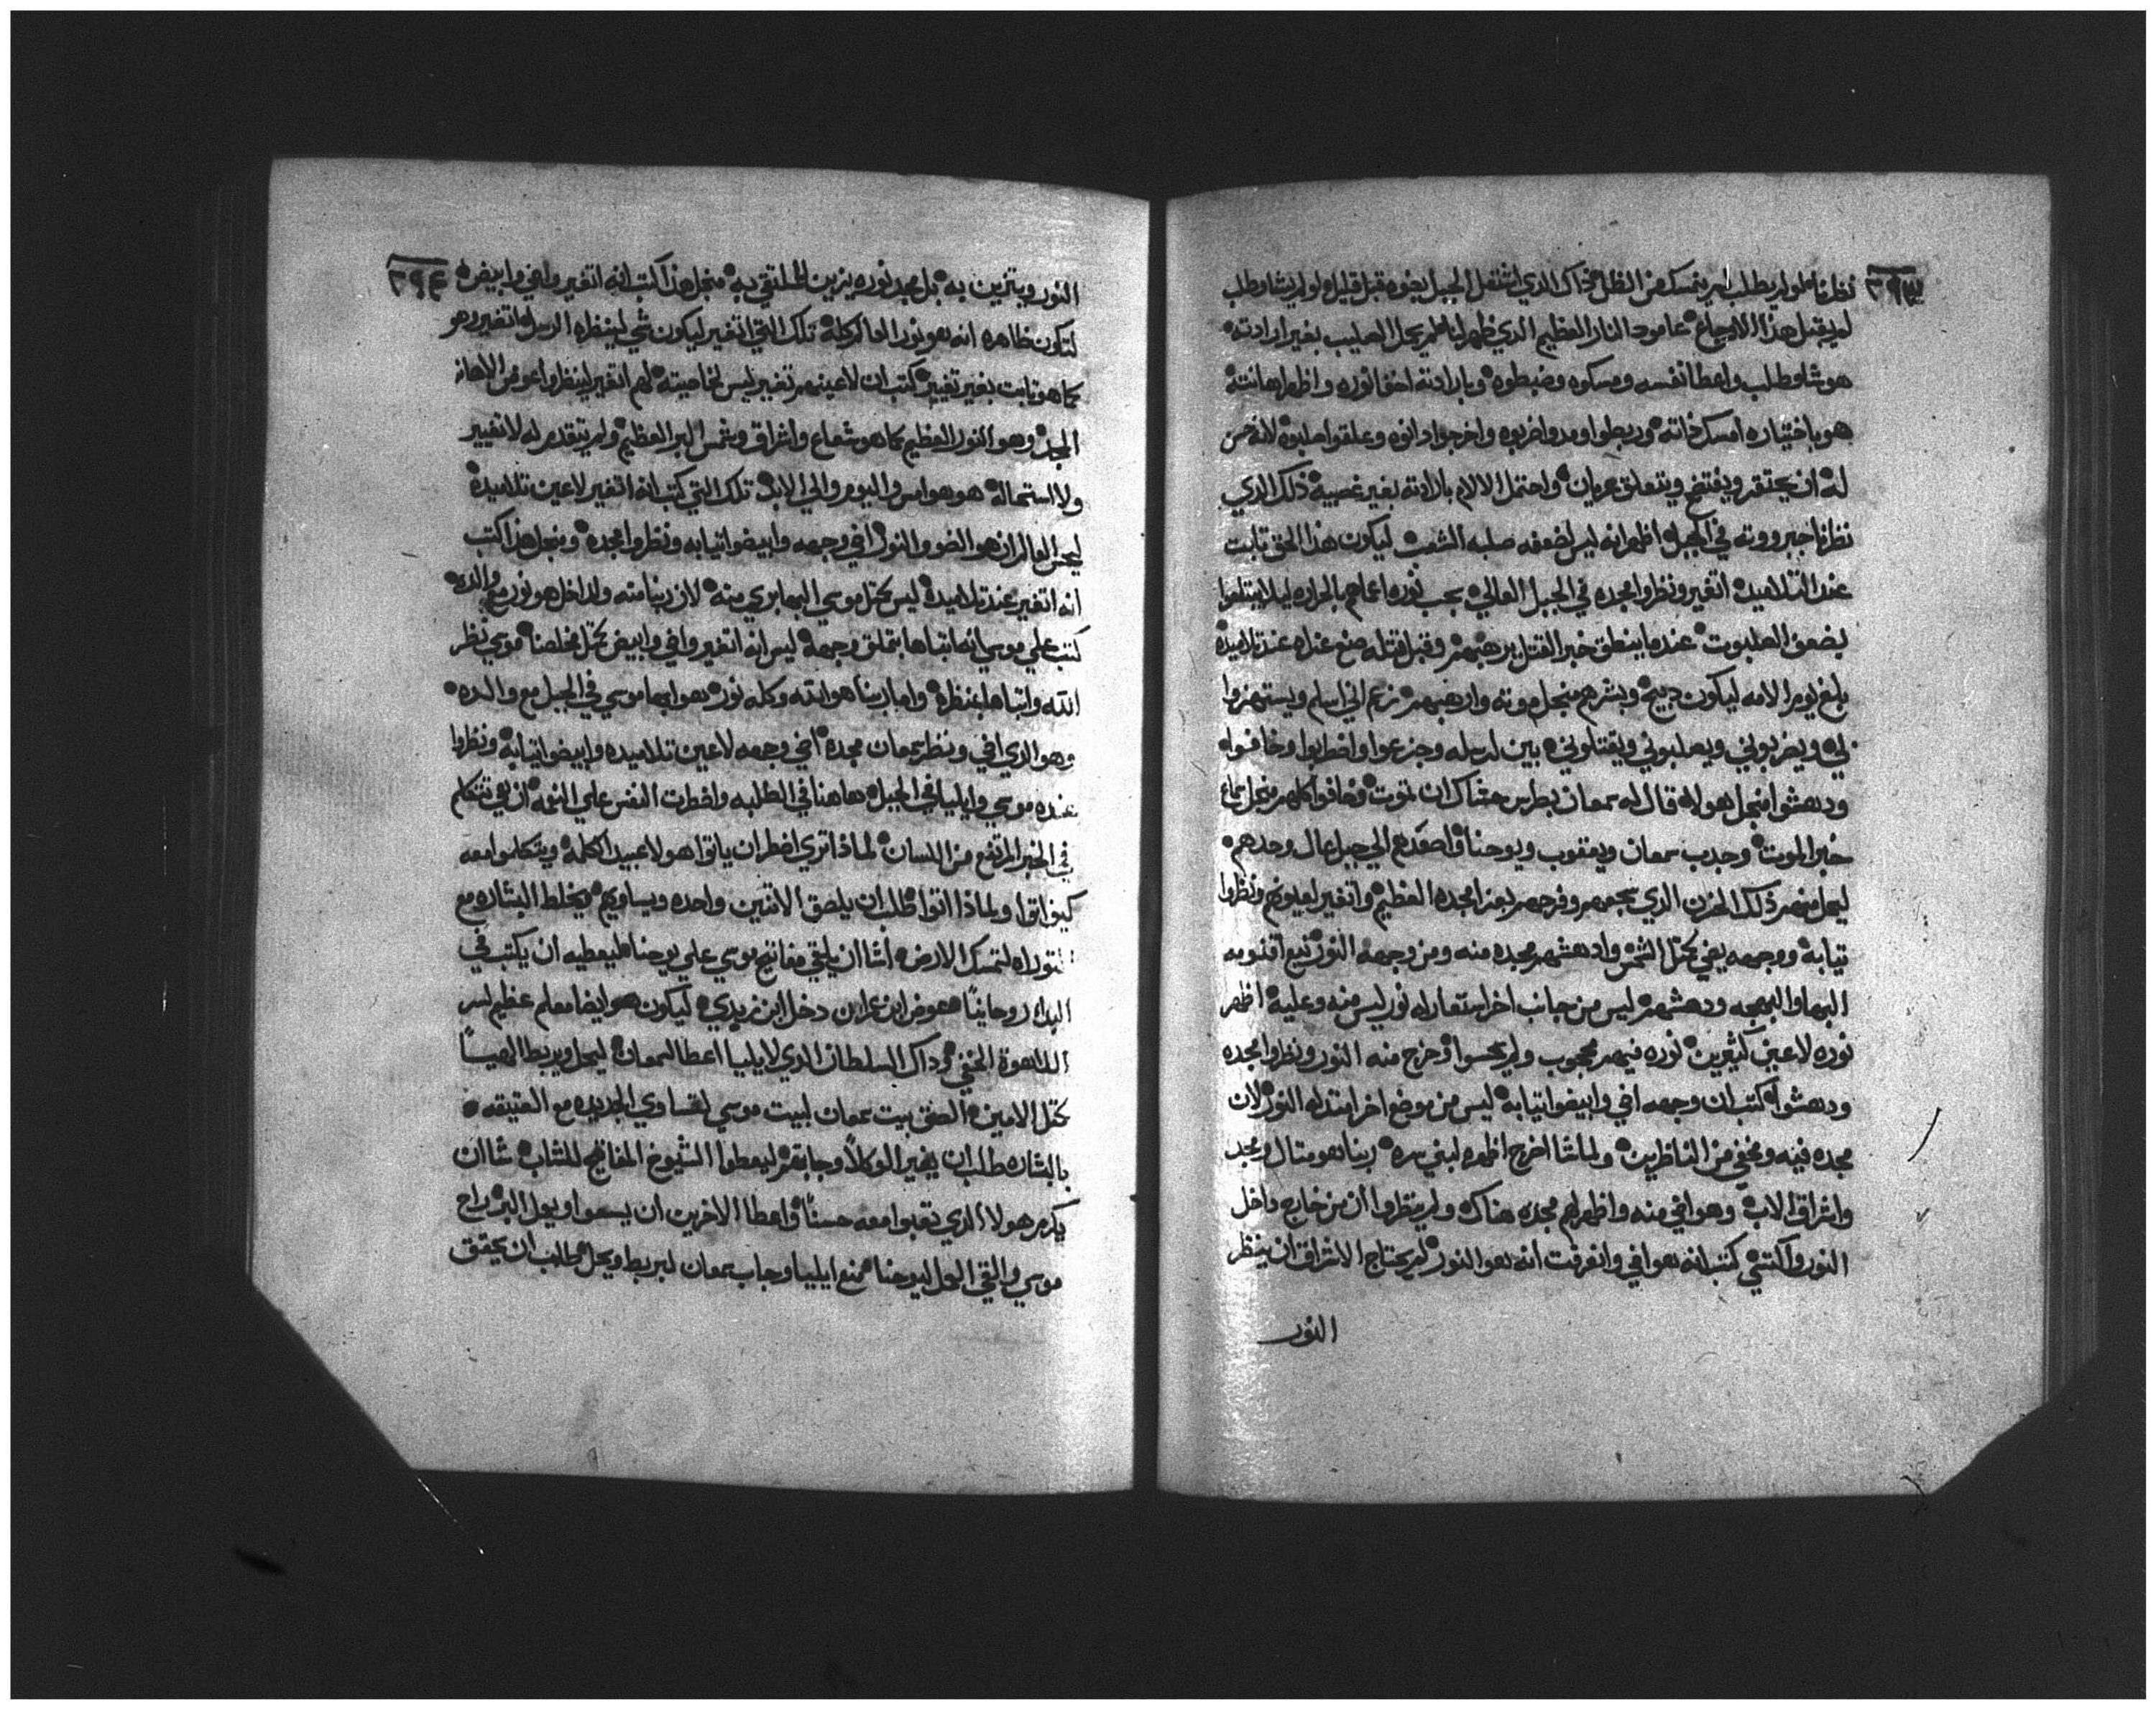 نظرناه لو لم يطلب لم يتمسك من الظل ذاك الذي اشتعل الجبل بضوه قبل قليل ولو لم يشا ويطلب
لم يقبل هذا الاوجاع عامود النار العظيم الذي ظهر لنا لم يحل الصليب بغير ارادته
هو شا وطلب واعطا نفسه ومسكوه وضبطوه وبارادته اخفا نوره واظهر اهانته
هو باختياره امسك ذاته وربطوا ومدوا ضربوه واخرجوا دانوه وعلقوا صلبوه لانه حسن
له ان يحتقر ويفتضح ويتعلق عريان واحتمل الالام بارادته بغير غصبيه ذلك الذي
نظرنا جبرووته في الجبل اظهر انه ليس لضعفه صلبه الشعب ليكون هذا الحق تابت
عند التلاميد اتغير ونظروا مجده في الجبل العالي بحب نوره اعماهم بالحراره ليلا يبتلعوا
بضعف الصلبوت عندما ينطق خبر القتل يرهبهم وقبل قتله صنع عنده عند تلاميده
بلغ يوم الامه ليكون دبيح وبشرهم منجل موته وارهبهم زعم اني اسلم ويستهزوا
لي ويضربوني ويصلبوني ويقتلوني بين لرسله وجزعوا واضطربوا وخافوا
ودهشوا منجل هولاي قال له سمعان بطرس حشاك ان تموت وخافوا كلهم منجل سماع
خبر الموت وجدب سمعان ويعقوب ويوحنا واصعدهم الي جبل عال وحدهم
ليحل منهم ذلك الحزن الذي يجمعهم وفرحهم بعز مجده العظيم واتغير لعيونهم ونظروا
تيابه ووجهه يضي كمتل الشمس وادهشهم مجده منه ومن وجهه النور نبع اقنومه
البها والبهجه ودهشهم ليس من جانب اخر استعار له نور ليس منه وعليه اظهر
نوره لاعين كتيرين نوره فيهم محجوب ولم يحسوا وخرج منه النور ونظروا مجده
ودهشوا كتب ان وجهه اضي وابيضوا تيابه ليس من موضع اخر امتد له النور لان
مجده فيه ومخفي من الناظرين ولما شا اخرج اظهره لبني سره ربنا هو متال ومجد
واشراق الاب وهو اضي منه واظهر لهم مجده هناك ولم ينظروا ان من خارج داخل
النور واكتسي كتب انه هو اضي وانعرفت انه هو النور لم يحتاج الاشراق ان ينظر
النور
النور ويتزين به بل مجد نوره يزين للملتقي به منجل هذا كتب انه اتغير واضي وابيض
لتكون ظاهره انه هو نور العالم كله تلك التي اتغير ليكون شي لينظره الرسل اتغير وهو
كما هو تابت بغير تغيير كتب ان لاعينهم تغير ليس لخاصيته لهم اتغير لينظروا عوض الاهانه
المجد وهو النور العظيم كما هو شعاع واشراق وشمس البر العظيم ولم يتقدم له لا تغيير
ولا استحاله هو هو امس واليوم والي الابد تلك التي كتب انه اتغير لاعين تلاميده
ليحس العالم ان هو الضو والنور اضي وجهه وابيضوا تيابه ونظروا مجده ومنجل هذا كتب
انه اتغير عند تلاميده ليس كمتل موسي البها بري منه لان ربنا منه ولداخل هو نور مع والده
كتب علي موسي انه انباها بتملق وجهه ليس انه اتغير واضي وابيض كمتل مخلصنا موسي نظر
الله وانباها بمنظره واما ربنا هو الله وكله نور هو ابها موسي في الجبل مع والده
وهو الذي اضي ونظر سمعان مجده اضي وجهه لاعين تلاميده وابيضوا تيابه ونظروا
عنده موسي وايليا في الجبل هاهنا في الطلبه واضطرت النفس علي النوه ان هي تتكلم
في الخبر المرتفع من اللسان لماذا تري اضطر ان ياتوا هولا عبيد الكلمه ويتكلموا معه
كيف اتوا ولماذا اتوا طلب ان يلصق الاتنين واحده ويساويهم ويخلط البشاره مع
التوراه لتمسك الارض اشا ان يلقي مفاتيح موسي علي يوحنا ليعطيه ان يكتب في
البدا روحانياً عوض ابن عمران دخل ابن زبدي ليكون هو ايضا معلم عظيم لسر
اللاهوة الخفي وداك السلطان الذي لايليا اعطا لسمعان ليحل ويربط الهيــاً
كمتل الامين الصق بيت سمعان لبيت موسي لتساوي الجديده مع العتيقه
بالبشاره طلب ان يغير الوكلاً وجابهم ليعطوا الشيوخ المفاتيح للشاب شا ان
يكرم هولا الذي تعبوا معه حسناً واعطا الاخرين ان يسعوا ويول البر راح
موسي والقي العل ليوحنا منع ايليا وجاب سمعان ليربط ويحل طلب ان يحقق